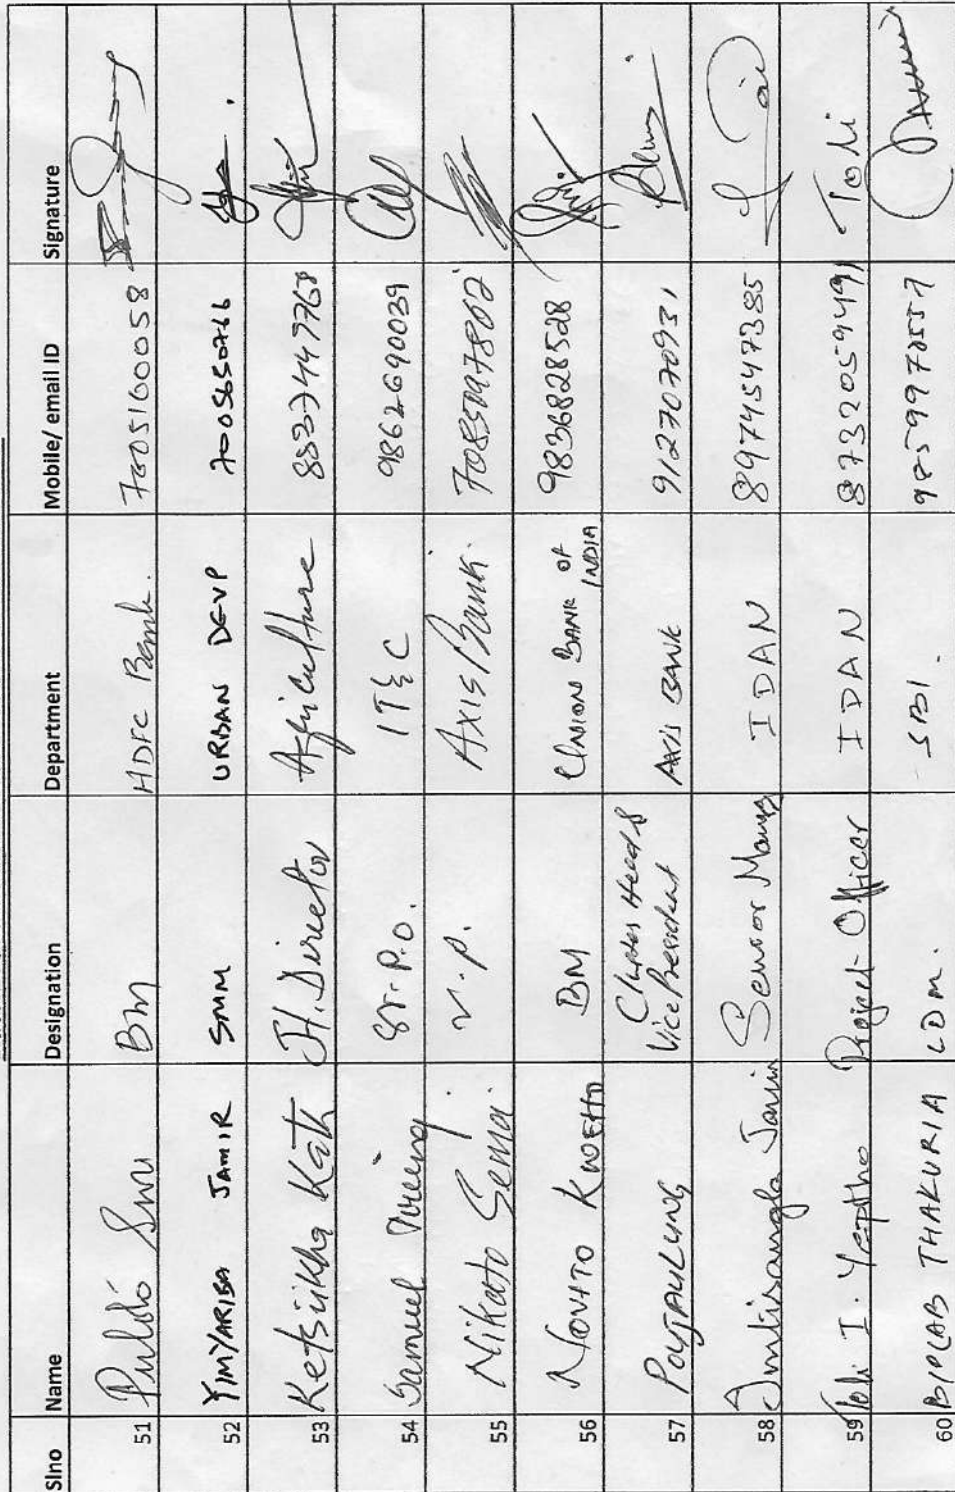 Slno Name Designation Department Mobile/ email ID Signature
51 Pulito Swu BM HDFC Bank. 7005160058
52 YIMYARIBA JAMIR SMM URBAN DEVP 7005650766
53 Ketsükha Kath Jt. Director Agriculture
54 Samuel Sr. P.O. IT & C 9862690039
55 Nikato Sema V.P. Axis Bank. 7085097802
56 NOVITO KWETHO BM UNION BANK OF INDIA 9836828528
57 POUJAULUNG Cluster Head & Vice President AXIS BANK 9127070931
58 Imtisangla Jamir Senior Manager IDAN 8974547385
59 Toli I. Yeptho Project Officer IDAN Toli
60 BIPLAB THAKURIA LDM. SBI.